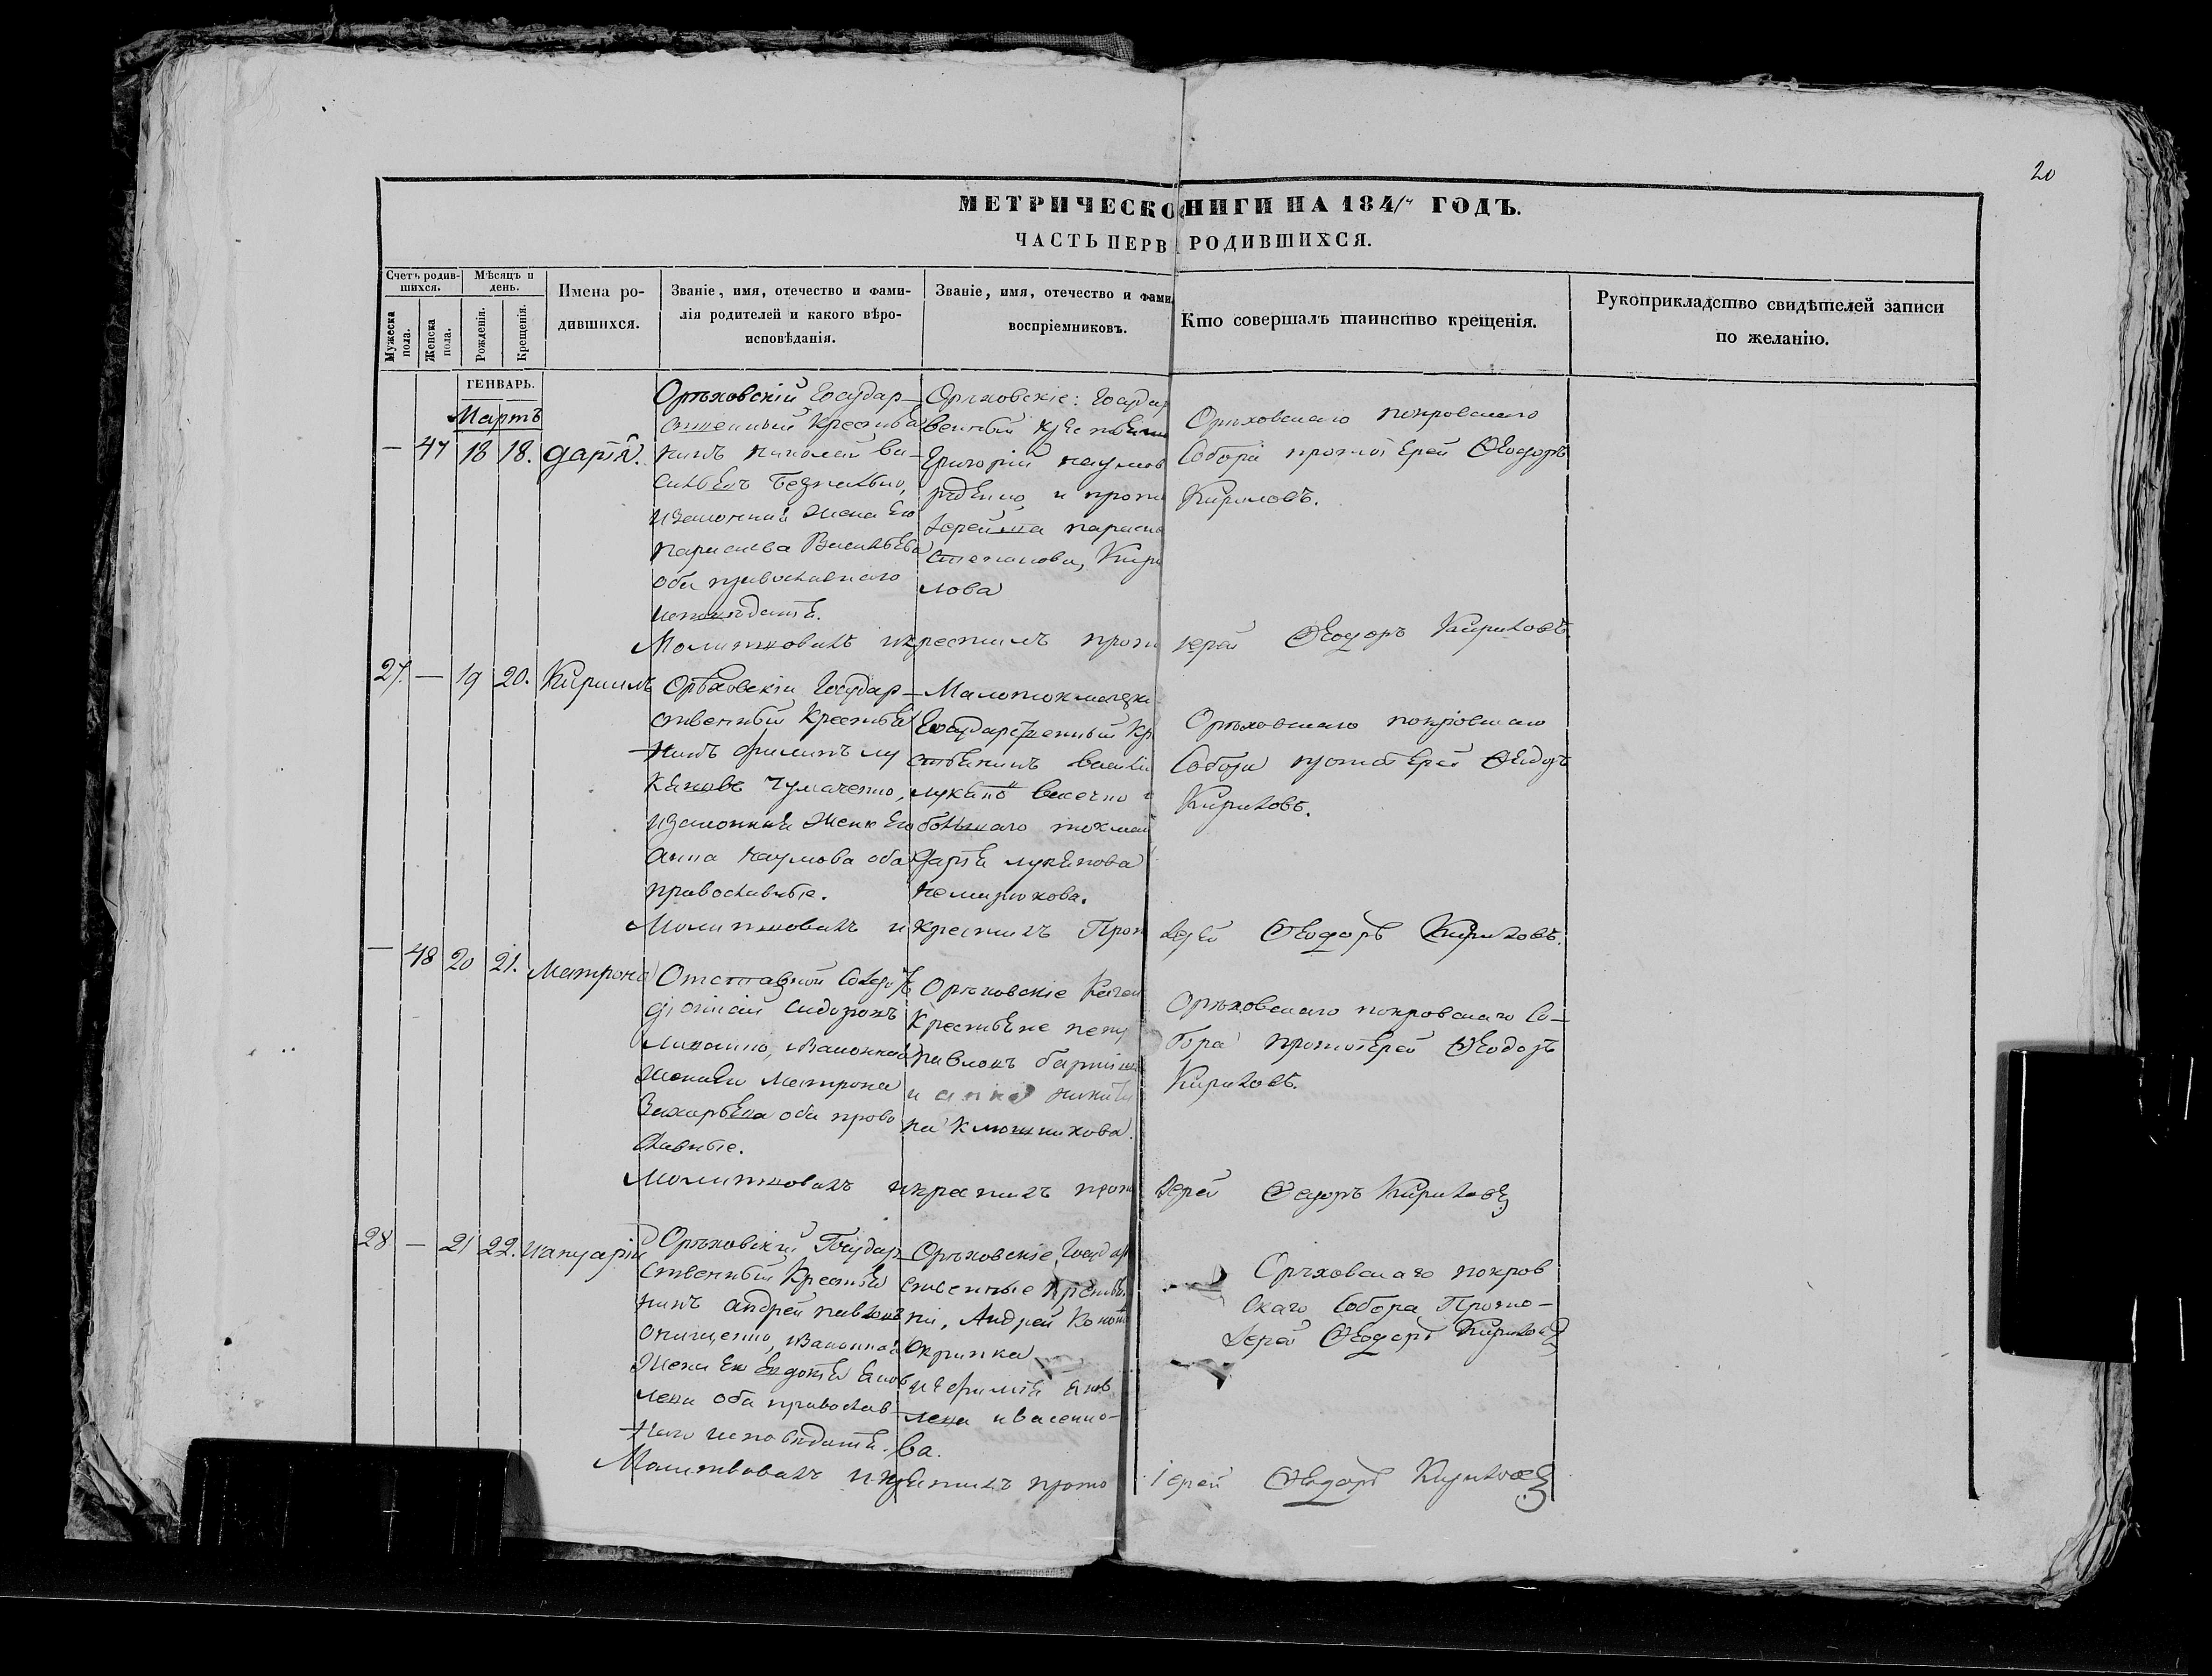 20
МЕТРИЧЕСКО НИГИ НА 184/ ГОДЪ.
ЧАСТЬ ПЕРВ РОДИВШИХСЯ.
Счетъ родив-
шихся.
Мужеска
пола.
Женска
пола.
Мѣсяцъ и
день.
Рожденія.
Крещенія.
Имена ро-
дившихся.
Званіе, имя, отечество и фами-
лія родителей и какого вѣро-
исповѣданія.
Званіе, имя, отечество и фами
воспріемниковъ.
Кто совершалъ таинство крещенія.
Рукоприкладство свидѣтелей записи
по желанію.
ГЕНВАРЬ.
Мартъ
— 47 18 18. Дарія.
Орѣховскій Государ—
ственный Крестья
нинъ Николай Ва-
сильевъ
изаконная жена Его
Параскева Васильева
оба православнаго
исповѣданія.
Орѣховскіе: Государ
венный крестьяни
Григорій Наумов
и прото
Іерейша параске
Степанова, Кири
лова
Орѣховскаго покровскаго
Собора протоіерей Ѳеодоръ
Кириловъ.
Молитвовалъ икрестилъ прото іерей Ѳеодоръ Кириловъ.
27. — 19 20. Кириллъ
Орѣховскій Государ—
ственный Крестья
нинъ Филипъ Лу
кяновъ Чумаченко,
изаконная жена Его
Анна Наумова оба
православные.
Малотокмацки
Государственный Кр
стьянинъ Васили
лукянъ и
большаго токмак
Дарія лукянова
Орѣховскаго покровскаго
Собора протоіерей Ѳеодоръ
Кириловъ.
Молитвовалъ и крестилъ Прот іерей Ѳеодоръ Кириловъ.
— 48 20 21. Матрона
Отставной Солдатъ
Сидоровъ
изаконная
жена Его Матрона
Захарьева оба право
славные.
Орѣховскіе Казен
Крестьяне петр
павловъ
и анна никити
на Ключникова.
Орѣховскаго покровскаго Со—
бора протоіерей Ѳеодоръ
Кириловъ.
Молитвовалъ икрестилъ прото Іерей Ѳеодоръ Кириловъ
28 — 21 22. Иануарій
Орѣховскій Государ
ственный Крестья
нинъ Андрей павловъ
Онищенко, изаконная
жена Его Евдокія Яков
лева оба православ—
наго исповѣданія.
Орѣховскіе Государ
ственные крестья
не, Андрей
Скрипка
иЕфимія Яков
лева иваненко—
ва.
Орѣховскаго покров
скаго Собора Прото—
Іерей Ѳеодоръ Кириловъ
Молитвовалъ икрестилъ прото іерей Ѳеодоръ Кириловъ